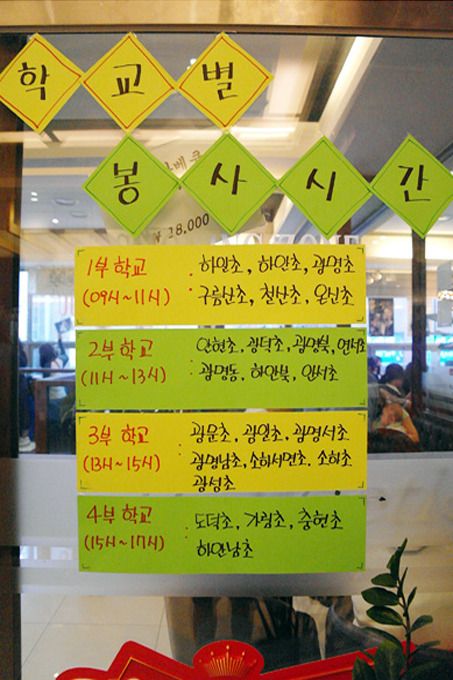 학교별
봉사시간
28,000
1부 학교 : 하일초, 하안초, 광명초
(09시~11시) 구름산초, 철산초, 온신초
2부 학교 : 안현초, 광덕초, 광명북, 연서초
(11시~13시) 광명동, 하안북, 안서초
3부 학교 : 광문초, 광일초, 광명서초
(13시~15시) 광명남초, 소하서면초, 소하초
광성초
4부 학교 : 도덕초, 가림초, 충현초
(15시~17시) 하안남초